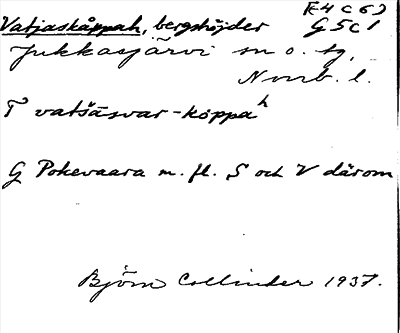 Vatjaskåppah, bergshöjder F4 c 6)
G 5 c 1
Jukkasjärvi sn o. tg,
Norrb. l.
T vatšāsvar-kåppaʰ
G Pokevaara m. fl. S och V därom
Björn Collinder 1937.